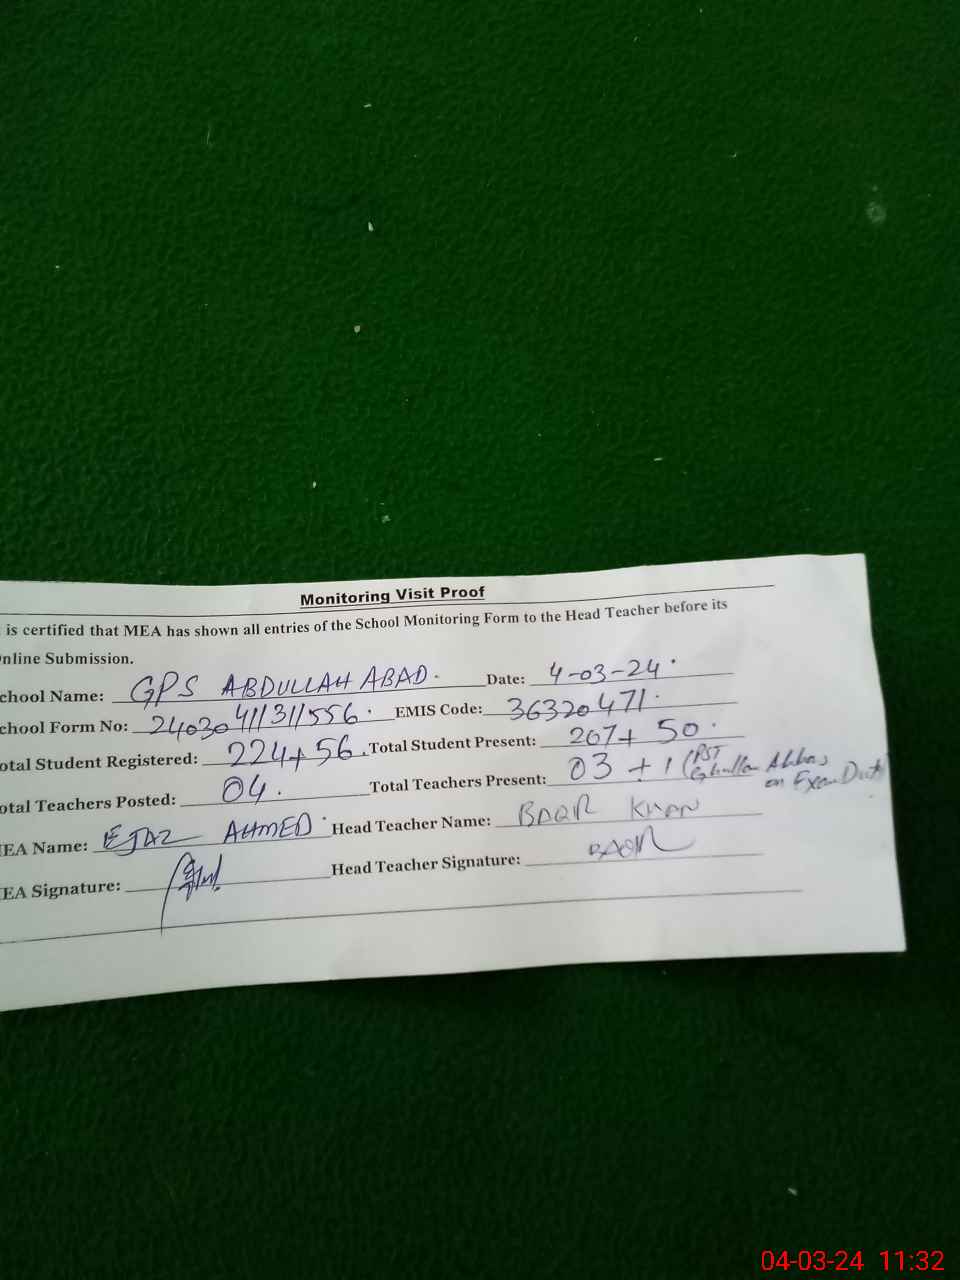 Monitoring Visit Proof
is certified that MEA has shown all entries of the School Monitoring Form to the Head Teacher before its
nline Submission.
chool Name: GPS ABDULLAH ABAD. Date: 4-03-24
chool Form No: 24030411311556. EMIS Code: 36320471
otal Student Registered: 224+56. Total Student Present: 207+ 50
otal Teachers Posted: 04. Total Teachers Present: 03 + 1 (PST
Ghullam Abbas
on Exam Duty
EA Name: EJAZ AHMED Head Teacher Name: BAQR KHAN
EA Signature: Head Teacher Signature: BAQR
04-03-24 11:32